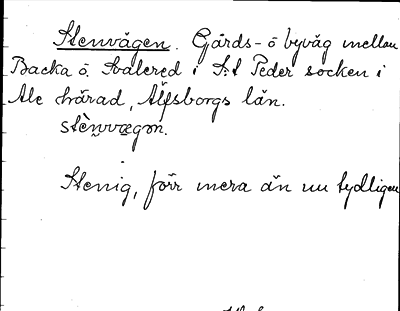 Stenvägen. Gårds- o byväg mellan
Backa o. Svalered i S:t Peder socken i
Ale härad, Älfsborgs län.
stènvægɷn.
Stenig, förr mera än nu tydligen